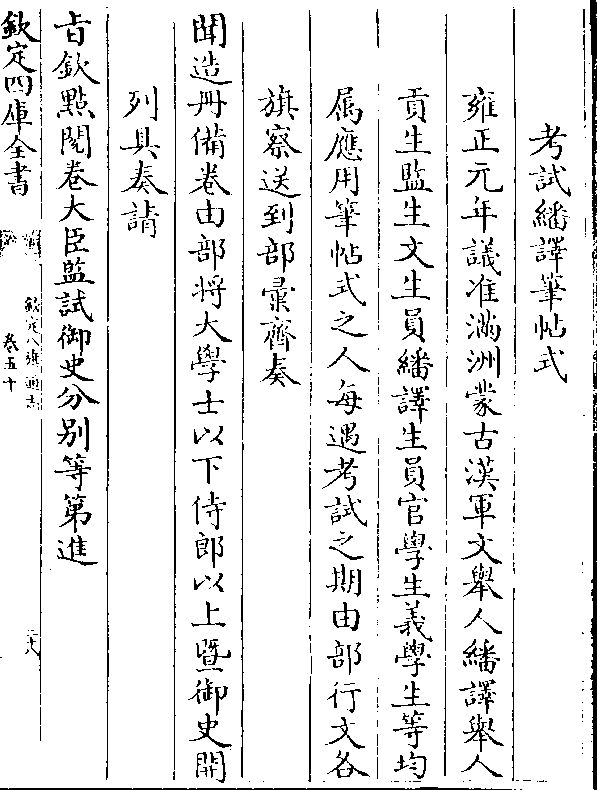 考試繙譯筆帖式
雍正元年議准滿洲蒙古漢軍文舉人繙譯舉人
貢生監生文生員繙譯生員官學生義學生等均
屬應用筆帖式之人每遇考試之期由部行文各
旗察送到部彙齊奏
聞造冊備卷由部將大學士以下侍郎以上暨御史開
列具奏請
旨欽點閱卷大臣監試御史分别等第進
欽定四庫全書
欽定八旗通志
卷五十